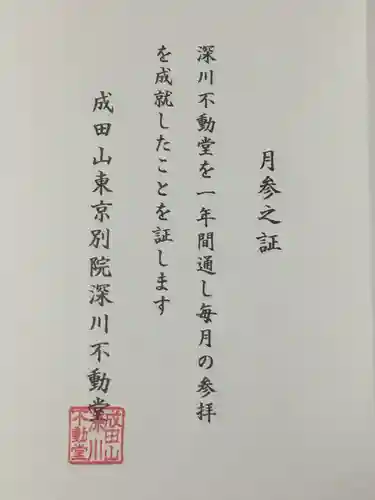 月参之証
深川不動堂を一年間通し毎月の参拝
を成就したことを証します
成田山東京別院深川不動堂
成田山
深川
不動堂